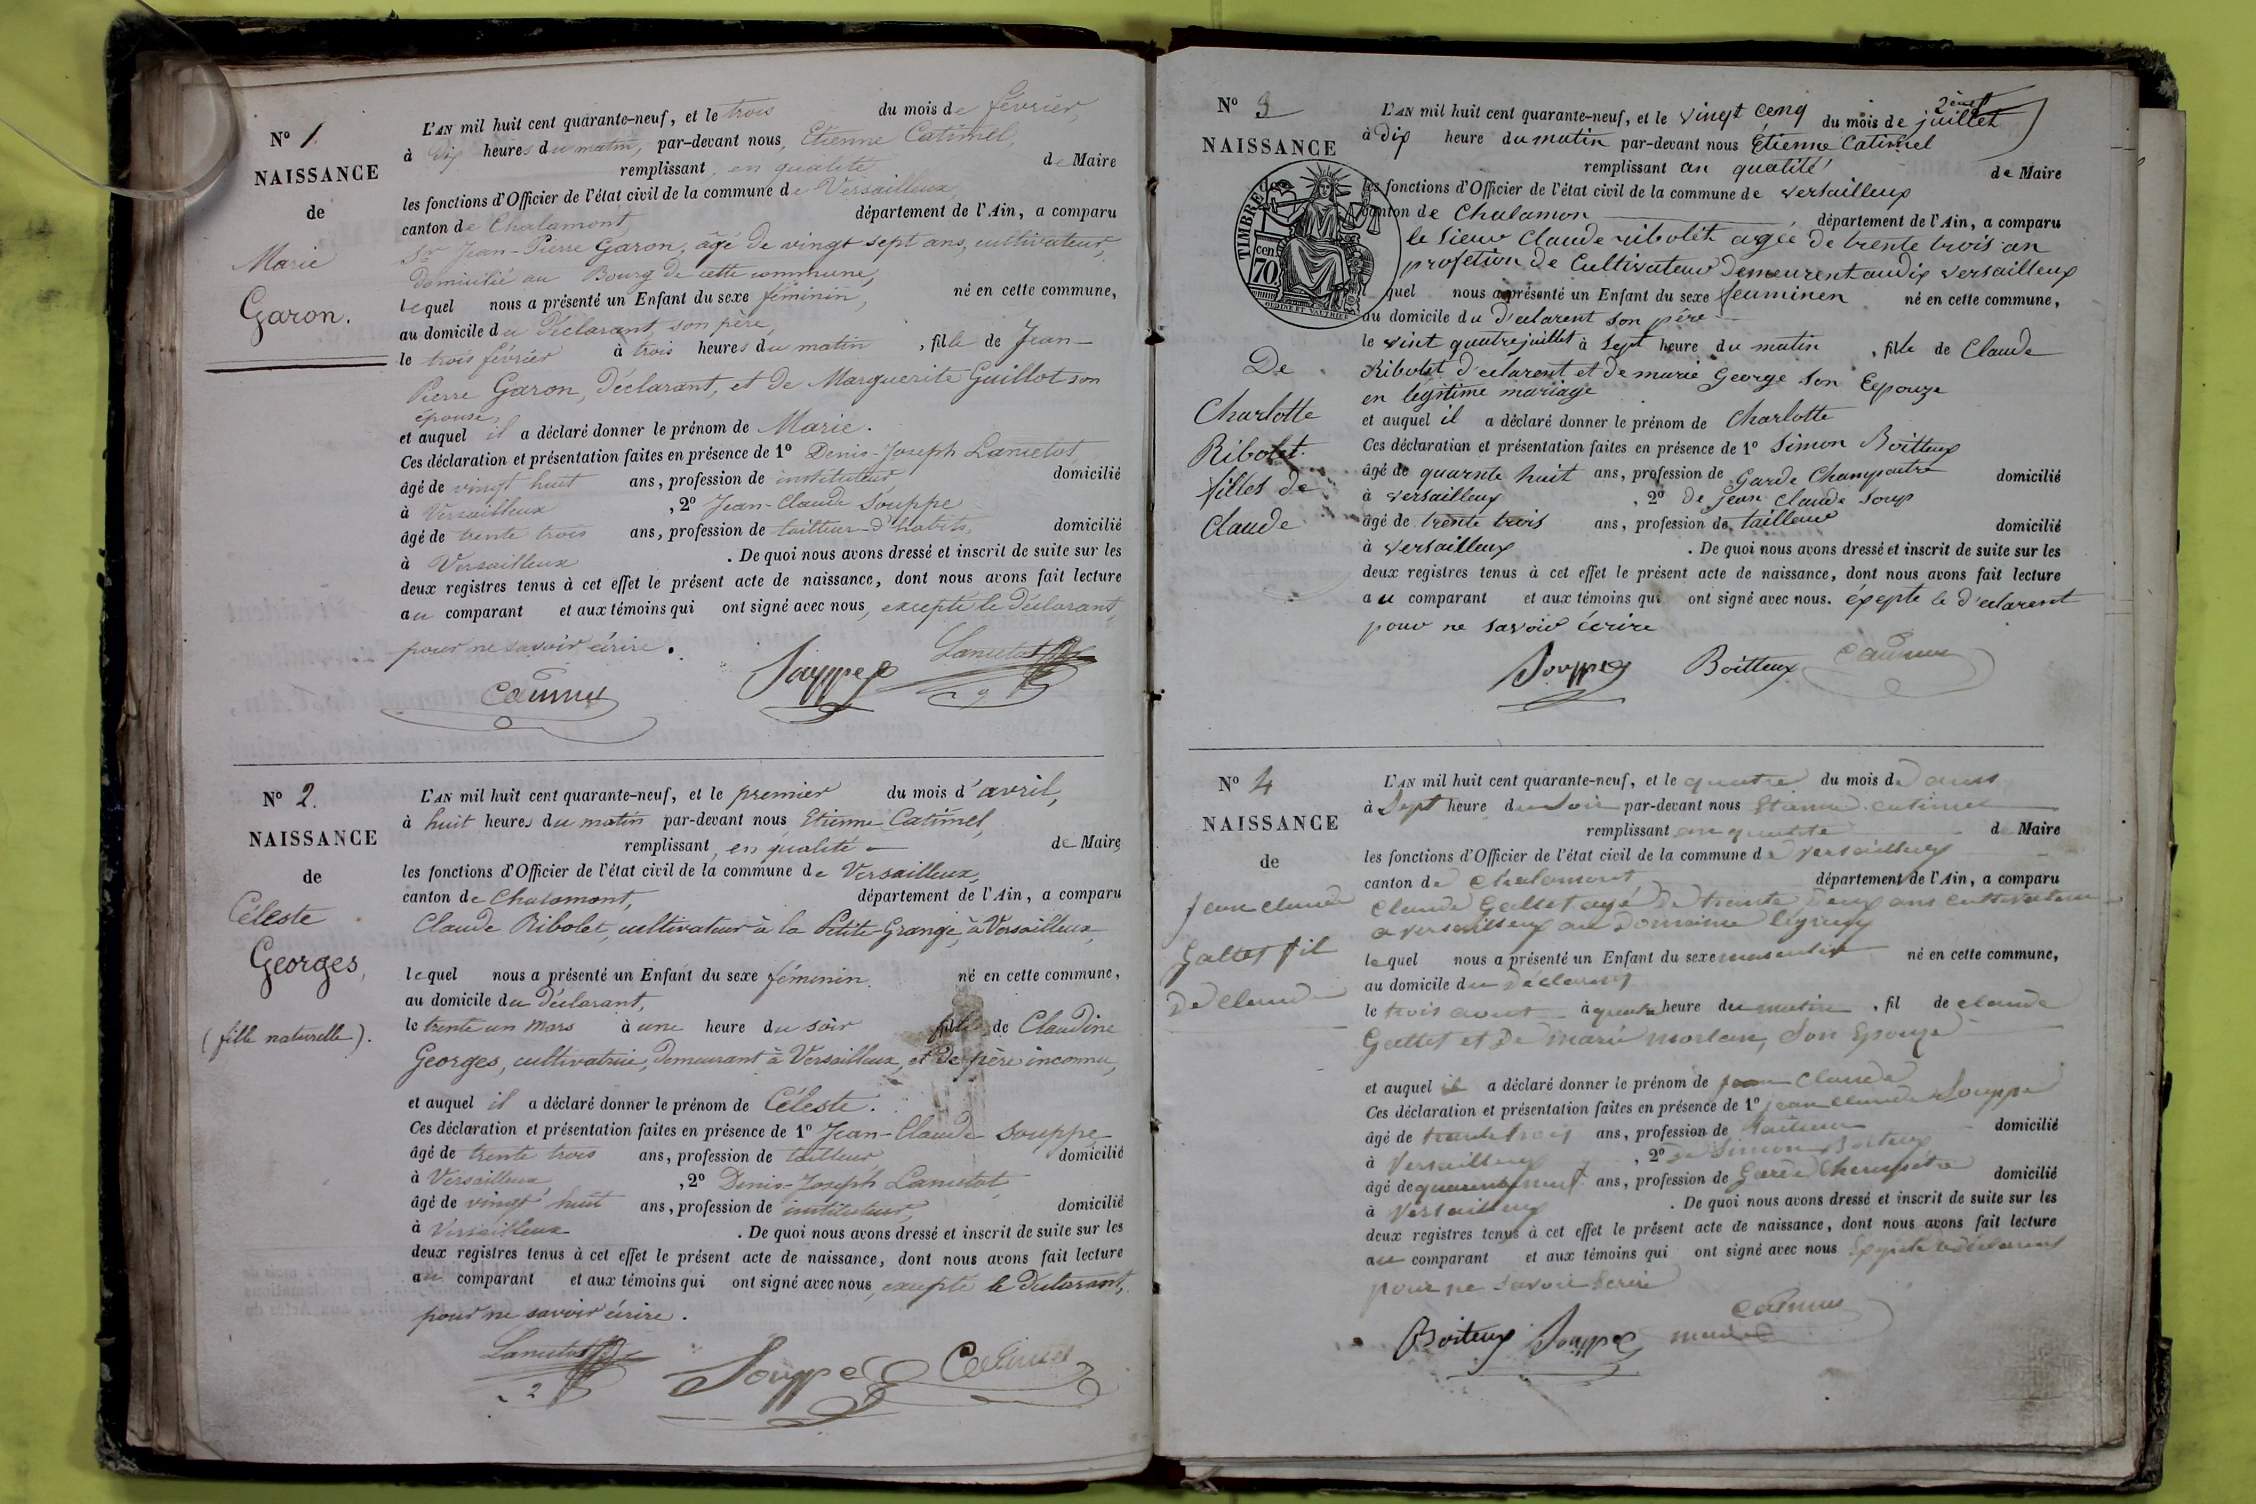 N° 1
NAISSANCE
de
Marie
Garon.
L'AN mil huit cent quarante-neuf, et le trois du mois de février,
à dix heures du matin, par-devant nous, Etienne Catimel,
remplissant, en qualité de Maire
les fonctions d'Officier de l'état civil de la commune de Versailleux,
canton de Chalamont, département de l'Ain, a comparu
Sr Jean-Pierre Garon, âgé de vingt sept ans, cultivateur,
domicilié au Bourg de cette commune,
lequel nous a présenté un Enfant du sexe féminin, né en cette commune,
au domicile du déclarant, son père,
le trois février à trois heures du matin, fille de Jean-
Pierre Garon, déclarant, et de Marguerite Guillot son
épouse,
et auquel il a déclaré donner le prénom de Marie.
Ces déclaration et présentation faites en présence de 1° Denis-Joseph Lanietot
âgé de vingt huit ans, profession de instituteur domicilié
à Versailleux, 2° Jean-Claude Souppe
âgé de trente trois ans, profession de tailleur d'habits, domicilié
à Versailleux. De quoi nous avons dressé et inscrit de suite sur les
deux registres tenus à cet effet le présent acte de naissance, dont nous avons fait lecture
au comparant et aux témoins qui ont signé avec nous, excepté le déclarant,
pour ne savoir écrire.
Catimel Souppe
N° 2.
NAISSANCE
de
Céleste
Georges,
(fille naturelle).
L'AN mil huit cent quarante-neuf, et le premier du mois d'avril,
à huit heures du matin par-devant nous Etienne Catimel,
remplissant, en qualité de Maire
les fonctions d'Officier de l'état civil de la commune de Versailleux,
canton de Chalamont, département de l'Ain, a comparu
Claude Ribolet, cultivateur à la Petite-Grange, à Versailleux,
lequel nous a présenté un Enfant du sexe féminin, né en cette commune,
au domicile du déclarant,
le trente un mars à une heure du soir fille de Claudine
Georges, cultivatrice, demeurant à Versailleux, et de père inconnu,
et auquel il a déclaré donner le prénom de Céleste.
Ces déclaration et présentation faites en présence de 1° Jean-Claude Souppe
âgé de trente trois ans, profession de tailleur domicilié
à Versailleux, 2° Denis-Joseph Lanietot
âgé de vingt huit ans, profession de instituteur, domicilié
à Versailleux. De quoi nous avons dressé et inscrit de suite sur les
deux registres tenus à cet effet le présent acte de naissance, dont nous avons fait lecture
au comparant et aux témoins qui ont signé avec nous, excepté le déclarant,
pour ne savoir écrire.
Souppe Catimel
N° 3
NAISSANCE
TIMBRE
cen
70
De
Charlotte
Ribolet
filles de
Claude
L'AN mil huit cent quarante-neuf, et le vingt cenq du mois de juillet
à dix heure du matin par-devant nous Étienne Catimel
remplissant an quatité de Maire
les fonctions d'Officier de l'état civil de la commune de versailleux
canton de Chalamon département de l'Ain, a comparu
le Sieur Claude ribolét agée de trente trois an
profetion de Cultivateur Demeurent audix versailleux
quel nous a présenté un Enfant du sexe feuminen né en cette commune,
au domicile du d'eclarent son pére
le vint quatre juillet à sept heure du matin, fille de Claude
Ribolet d'eclarent et de marie George son Epouze
en legitime mariage
et auquel il a déclaré donner le prénom de Charlotte
Ces déclaration et présentation faites en présence de 1° Simon Boitteux
âgé de quarnte huit ans, profession de Garde Champaitre domicilié
à versailleux, 2° de jean Claude Soup
âgé de trente trois ans, profession de tailleur domicilié
à versailleux. De quoi nous avons dressé et inscrit de suite sur les
deux registres tenus à cet effet le présent acte de naissance, dont nous avons fait lecture
au comparant et aux témoins qui ont signé avec nous. éxepte le d'eclarent
pour ne savoir écrire
Souppe Boitteux Catimel
N° 4
NAISSANCE
de
jean claude
Gallet fil
De claude
L'AN mil huit cent quarante-neuf, et le quatre du mois de
à Sept heure du Soir par-devant nous Etienne catimel
remplissant en qualité de Maire
les fonctions d'Officier de l'état civil de la commune de versailleux
canton de Chalamont département de l'Ain, a comparu
Claude Gallet agé De trente Deux ans cultivateur
a versailleux au Domaine
lequel nous a présenté un Enfant du sexe masculin né en cette commune,
au domicile du Déclarent
le trois aout à quatre heure du matin, fil de claude
Gallet et De marie morlan, Son Epouze
et auquel il a déclaré donner le prénom de jean Claude
Ces déclaration et présentation faites en présence de 1° jean claude Souppe
âgé de trante trois ans, profession de tailleur domicilié
à Versailleux, 2° de Simon Boiteux
âgé de quarente neuf ans, profession de Garde domicilié
à Versailleux. De quoi nous avons dressé et inscrit de suite sur les
deux registres tenus à cet effet le présent acte de naissance, dont nous avons fait lecture
au comparant et aux témoins qui ont signé avec nous
pour ne savoir
Boiteux Souppe Catimel